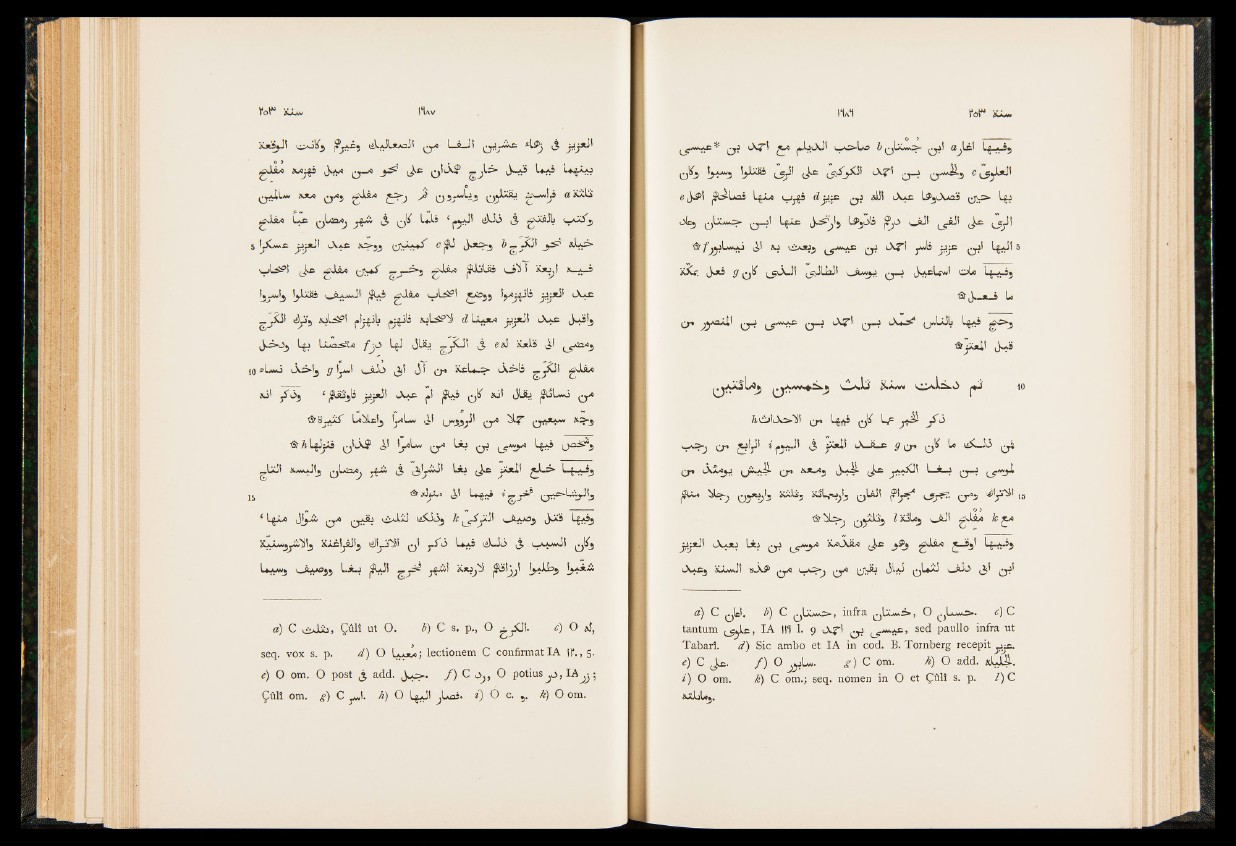 سنة ٢٥٣ ١٦٨٦
وفيها اغار a ابن جُسْتان b صاحب الديلم مع احمد بن *عيسى
العلوىّ c والحسن بن احمد الكوكبىّ على الرىّ فقتلوا وسبوا وكان
بها حين قصدوها عبد الله بن عزيز d فهرب منها فصالحهم اهل e
الرىّ على الفى الف درهم فأدّوها وارتحل عنها ابن جستان وعاد
5 اليها ابن عزيز فاسر احمد بن عيسى وبعث به الى نيسابور f ۞
وفيها مات اسماعيل بن يوسف الطالبىّ الذى كان g فعل بمكّة
ما فعل ۞
وحج بالناس فيها محمّد بن احمد بن عيسى بن المنصور من
قبل المعتزّ ۞
10 ثم دخلت سنة ثلث وخمسين ومائتين
ذكر الخبر عما كان فيها من الاحداث h
فمن ذلك ما كان من g عقد المعتزّ فى اليوم i الرابع من رجب
لموسى بن بغا الكبير على الجبل ومعه من الجيش يومئذ من
15 الاتراك ومن يجرى مجراهم الفان واربعمائة وثلثة واربعون رجلا منهم
مع k مُفْلح الف ومائة l وثلثون رجلا ۞
وفيها اوقع مفلح وهو على مقدّمة موسى بن بغا بعبد العزيز
ابن ابى دلف لثمان ليال بقين من رجب من هذه السنة وعبد
a) C اغان. b) C جستان, infra خستان, O حسان. c) C
tantum علوى, IA ١١٦ l. 9 عيسى بن احمد, sed paullo infra ut
Tabarî. d) Sic ambo et IA in cod. B. Tornberg recepit عزيز.
e) C على. f) O سابور. g) C om. h) O add. الجليلة.
i) O om. k) C om.; seq. nomen in O et Çûlî s. p. l) C
ومائتة.
سنة ٢٥٣ ١٦٨٧
العزيز فى زهاء عشرين الفا من الصعاليك وغيرهم وكانت الوقعة
بينهما فيما قيل خارج همذان على نحو من ميل فهزمه مُفْلح
ثلثة a فراسخ يقتلون ويأسرون ثم رجع مفلح ومن معه سالمين
وكتب بالفتح فى ذلك اليوم، فلمّا كان فى شهر رمضان عبّأ مفلح
5 خيله نحو الكَرَج b وجعل لهم c كمينين ووجّه عبد العزيز عسكرا
فيه اربعة آلاف فقاتلهم مفلح وخرج كمين مفلح على اصحاب
عبد العزيز فانهزموا ووضع اصحاب مفلح فيهم السيف فقتلوا واسروا
واقبل عبد العزيز معينا d لاصحابه فانهزم بانهزام اصحابه وترك الكَرَج
ومضى الى قلعة له e فى الكَرَج يقال لها زز f متحصّنا بها ودخل
10 مفلح الكَرَج فاخذ جماعة من آل ابى دُلَف اسرا g واخذ نساء
من نسائهم يقال انه كان فيهم امّ عبد العزيز فاوثقهم، وذُكر انه
وجّه سبعين حملا من الرؤوس الى سامرّا واعلاما كثيرة ۞
وشخص فيها موسى بن بغا من سامرّا الى همذان فنزلها h ۞
وفيها خلع المعتزّ على بغا الشرابىّ فى شهر رمضان والبسه التاج
15 والوشاحين فخرج i فيهما الى منزله ۞
وفيها قتل وصيف التركىّ k وذلك لثلث بقين من شوّال منها،
وكان السبب فى ذلك فيما ذكر ان الاتراك والفراغنة والاشروسنيّة
شغبوا وطلبوا ارزاقهم لاربعة اشهر فخرج اليهم بغا ووصيف وسيما
a) C بثلث, Çûlî ut O. b) C s. p., O الكرخ. c) O له,
seq. vox s. p. d) O مغيبيا; lectionem C confirmat IA ١٢., 5.
e) O om. O post فى add. جبل. f) C ورد, O potius در, IA زز;
Çûlî om. g) C اسر. h) O فصار اليها. i) O c. و. k) O om.